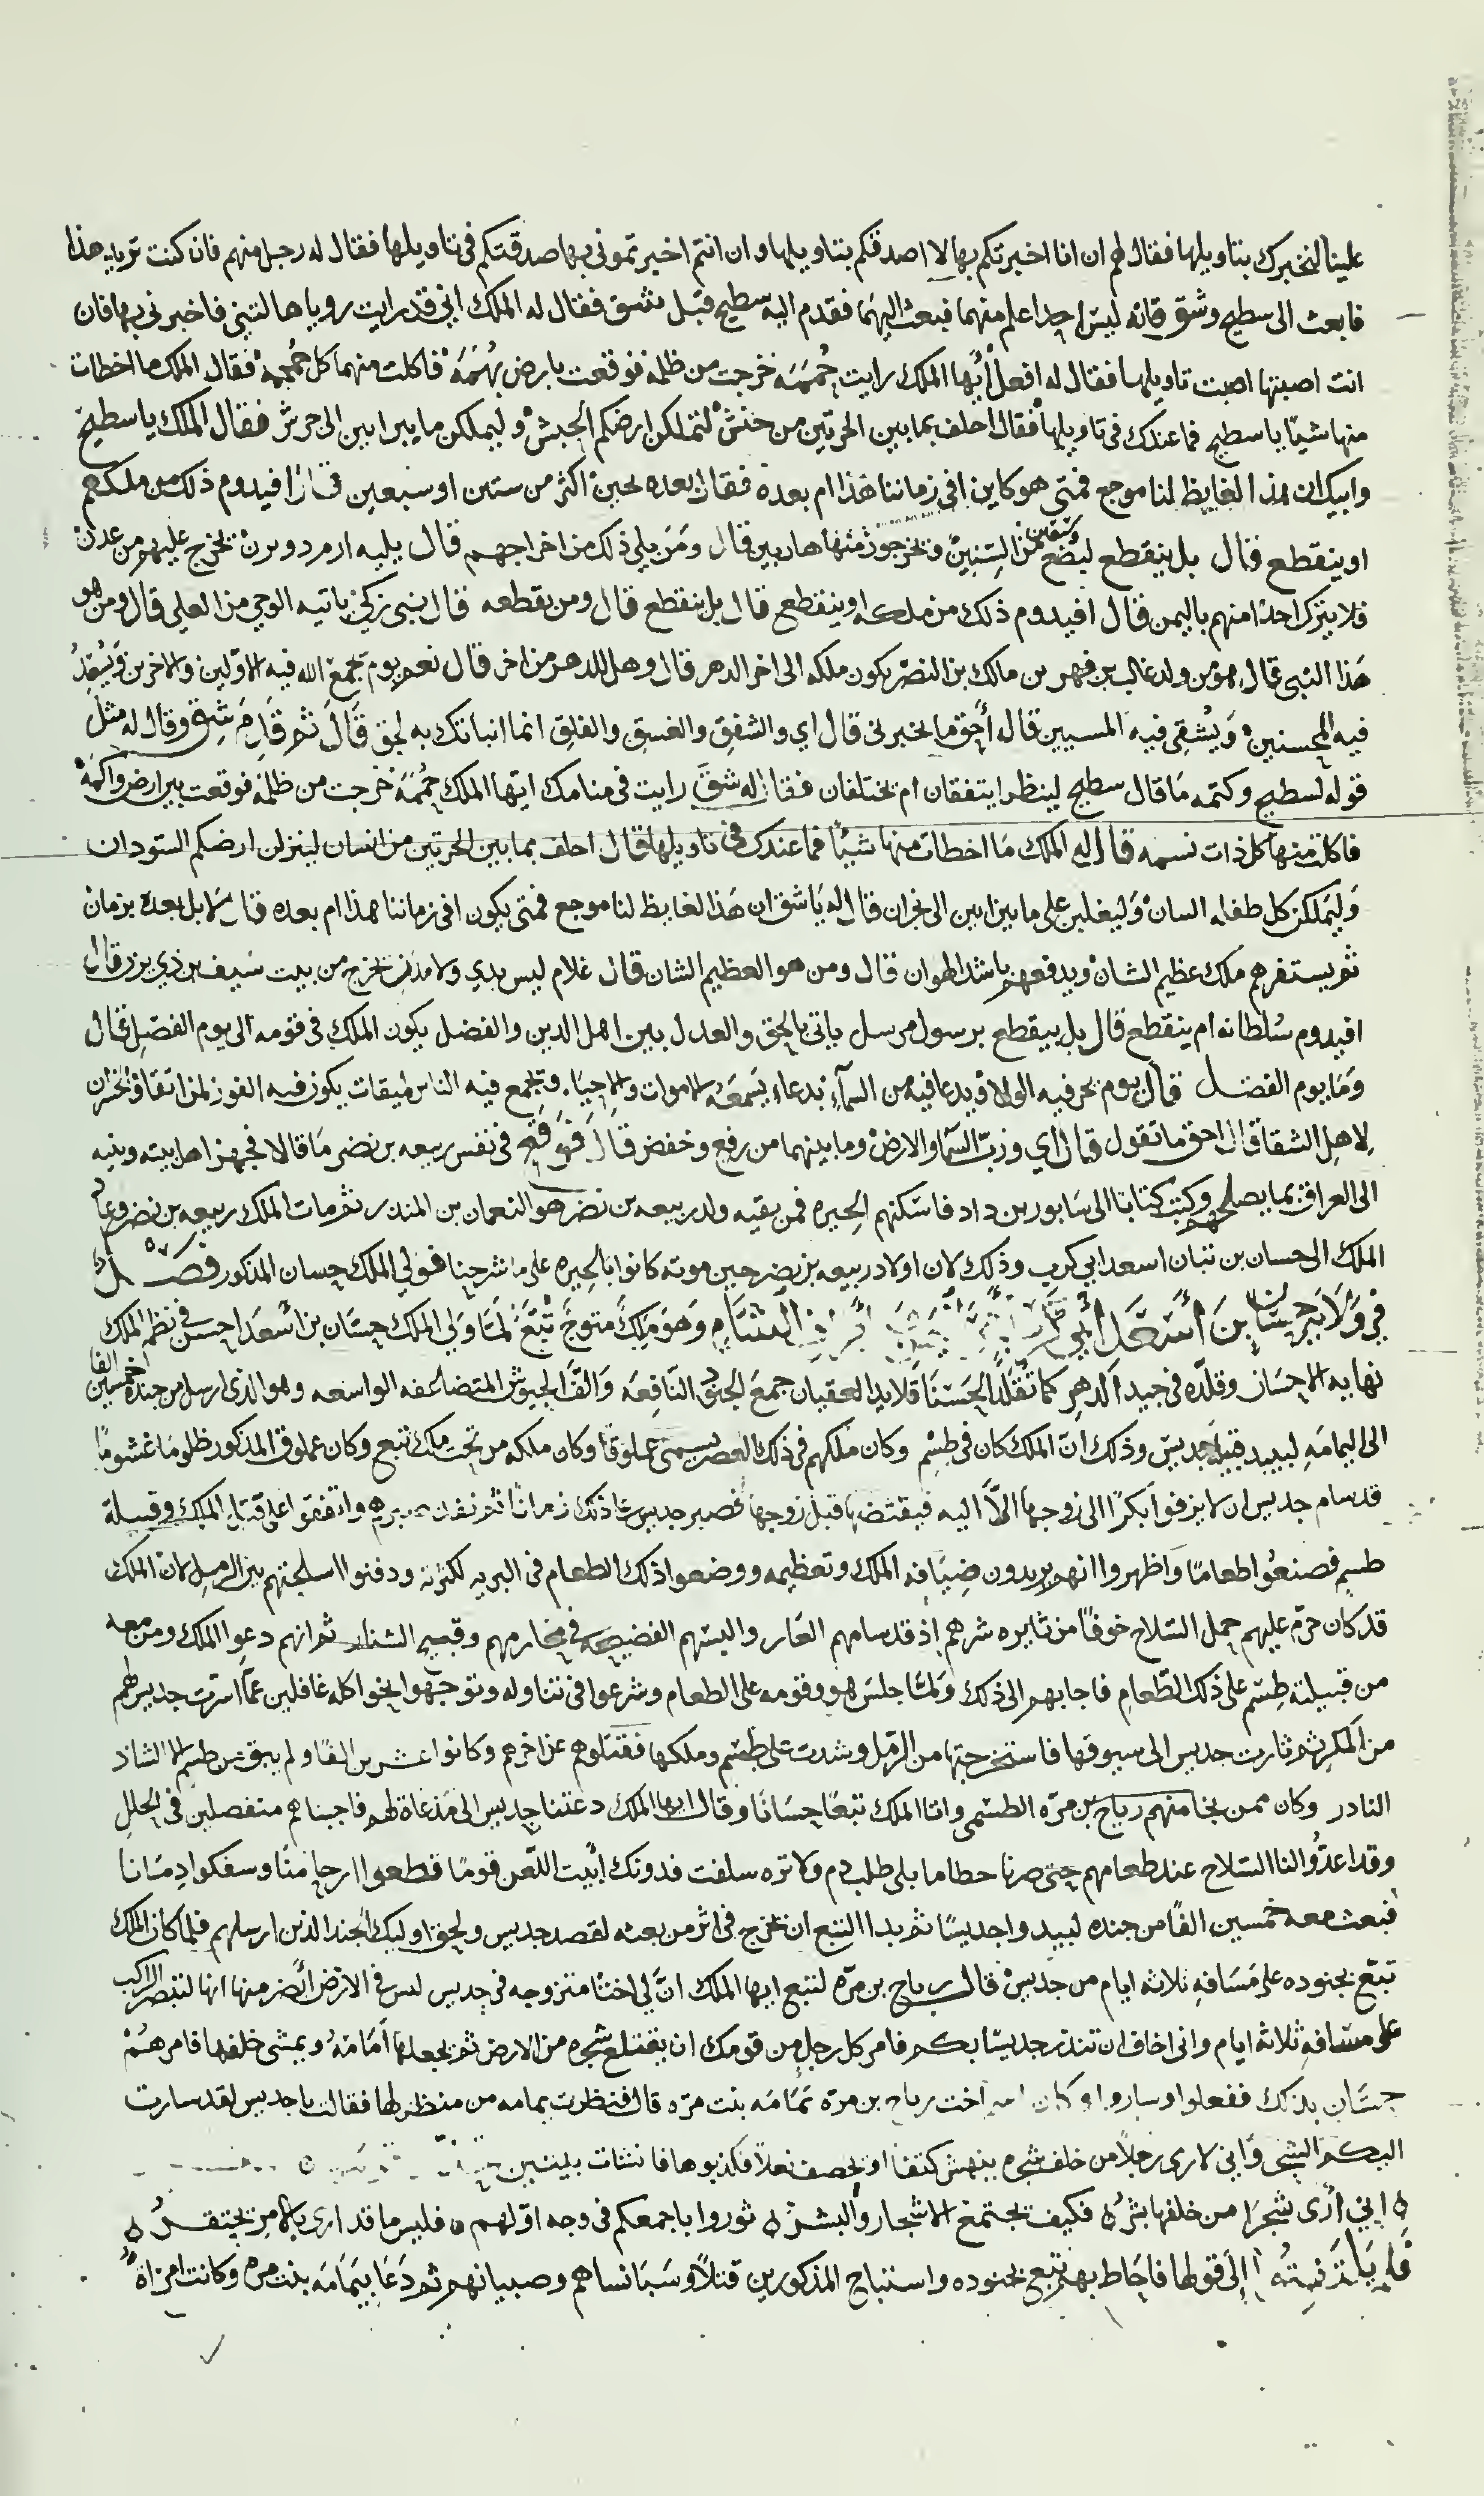 علينا لنخبرك بتاويلها فقال لهم ان انا اخبرتكم بها لا اصدقكم بتاويلها وان انتم اخبرتموني بها صدقتكم في تاويلها فقال له رجل منهم فان كنت تريد هذا
فابعث الى سطيح وشق فانه ليس احدا علم منهما فبعث اليهما فقدم اليه سطيح قبل شق فقال له الملك اني قد رايت رويا هالتني فاخبرني بها فان
انت اصبتها اصبت تاويلها فقال له افعل أيها الملك رايت حُممَه خرجت من ظلمه فوقعت بارض بُهمَه فاكلت منها كل جُمجمة فقال الملك ما اخطات
منها شيئا يا سطيح فما عندك في تاويلها فقال احلف بما بين الحرتين من حنش لتملكن ارضكم الحبش وليملكن ما بين ابين الى جرش فقال الملك يا سطيح
وابيك ان هذا لغايظ لنا موجع فمتى هو كاين افي زماننا هذا ام بعده فقال بعده بحين اكثر من ستين او سبعين قال افيدوم ذلك من ملكهم
او ينقطع قال بل ينقطع لبضع وسبعين من السنين ويخرجون منها هاربين قال ومَن يلي ذلك من اخراجهم قال يليه ارم ذو يزن يخرج عليهم من عدن
فلا يترك احدا منهم باليمن قال افيدوم ذلك من ملكه او ينقطع قال بل ينقطع قال ومن يقطعه قال نبي زكي ياتيه الوحي من العلي قال ومن هو
هذا النبي قال هو من ولد غالب بن فهر بن مالك بن النضر يكون ملكه الى اخر الدهر قال وهل للدهر من اخر قال نعم يوم يجمع الله فيه الاولين والاخرين ويُسْعِدُ
فيه المحسنين ويُشْقِى فيه المسيين قال له أحق ما تخبرني قال اي والشفق والغسق والفلق انما انباتك به لحق قَالَ ثم قدم شق وقال له مثل
قوله لسطيح وكتمه مَا قال سطيح لينظر ايتفقان ام يختلفان فقال له شق رايت في منامك ايها الملك حُمَمَه خرجت من ظلمة فوقعت بين ارض واكمة
فاكلت منها كل ذات نسمه قال له الملك مَا اخطات منها شيئا فما عندك في تاويلها قال احلف بما بين الحرتين من انسان لينزلن ارضكم السودان
وَليَملكن كل طفله البنان وَليغلبن على ما بين ابين الى نجران قال له يا شق ان هَذا لغايظ لنا موجع فمتى يكون افي زماننا هذا ام بعده قال لا بل بعده بزمان
ثم يستفزهم ملك عظيم الشان ويدفعهم باشد الهوان قال ومن هو العظيم الشان قال غلام ليس بدي ولا مدن يخرج من بيت سيف بن ذي يزن قال
افيدوم سُلطانه ام ينقطع قال بل ينقطع برسول مرسل ياتي بالحق والعدل بين اهل الدين والفضل يكون الملك في قومه الى يوم الفصل قال
وَمَا يوم الفصل قال يوم يجزى فيه الولاة ويدعا فيه من السمآء بدعاء يسمعه الاموات والاحياء ويجمع فيه الناس لميقات يكون فيه الفوز لمن اتقا والخسران
لاهل الشقا قال احق ما تقول قال أي وربّ السمآ والارض وما بينهما من رفع وخفض قال فَوَقَع في نفس ربيعه بن نضر مَا قالا فجهز اهل بيته وبنيه
الى العراق بما يصلحهم وكتب كتابا الى سَابور بن داد فاسكنهم الحيره فمن بقيه ولد ربيعه بن نضر هو النعمان بن المنذر ثم مات الملك ربيعه بن نضر وعاد
الملك الى حسان بن تبان اسعد ابي كرب وذلك لان اولاد ربيعه بن نضر حين موته كانوا بالحِيره على ما شرحنا فولي الملك حسان المذكور فصــل
في ولاية حسان بن أسعد أبي كرب الشام وَهوَ مَلِكٌ متوج تبّع لمّا ولي الملك حسّان بن اسْعَد احسن في نظم الملك
نهاية الاحسان وقلّده في جيد الدهر كما تقلد الحسنا قلايد العقيان جمعَ الجنود النافِعَه وَالفّ الجيوش المتضاعفه الواسعه وهو الذي ارسل من جنده خمسين الفا
الى اليمامَه ليبيد قبيلة جديس وذلك انّ الملك كان في طسْم وكان مَلكهم في ذلك العصر يسمى عملوقا وكان ملكه من تحت ملك تبع وكان عملوق المذكور ظلومًا غشومًا
قد سام جديس ان لا يزفوا بكرًا الى زوجها الاّ اليه فيفتضها قبل زوجها فصبر جديس على ذلك زمانًا ثم نفد صبرهم واتفقوا على قتل الملك وقبيلة
طسم فصنعُوا طعامًا وَاظهروا انهم يريدون ضِيَافه الملك وتعظيمه ووضعوا ذلك الطعام في البريه لكثرته ودفنوا اسلحتهم بين الرمل لان الملك
قد كان حرّم عليهم حمل السّلاح خوفًا من ثايره شرهم اذ قد سامهم العَار والبسَهم الفضيحه في محارمهم وقبيح الشنار ثم انهم دعوا الملك ومن معه
من قبيلته طِسْم على ذلك الطّعام فاجابهم الى ذلك وَلمّا جلسَ هو وقومه على الطعام وشرعوا في تناوله وتوجهوا نحو اكله غافلين عمّا اسرت جديس لهم
من المكر ثم ثارت جديس الى سيوفها فاستخرجتها من الرمل وشدت على طسْم وملكها فقتلوهم عن اخرهم وكانوا عشرين الفًا ولم يبق من طسْم الا الشاذ
النادر وكان ممن نجا منهم رياح بن مرّه الطسْمي واتا الملك تبعًا حِسَانًا وقال ايها الملك دعتنا جديس الى مَدعاة لهم فاجبناهم متفصلين في الحلل
وقد اعدُّوا لنا السّلاح عند طعامهم حتى صرنا حطاما بلى طلب دم ولا تره سلفت فدونك أبيت اللّعن قومًا قطعوا ارحامنا وسفكوا دِمَانا
فبعث معه خمسين الفًا من جنده ليبيدوا جديسًا ثم بدا التبع ان يخرج في اثر من بعثه لقصد جديس ولحق اوليك الجند الذين ارسلهم فلما كان الملك
تبع بجنوده على مَسَافه ثلاثه ايام من جديسْ قال رياح بن مرّه لتبع ايها الملك انّ لي اختا متزوجه في جديس ليس في الارض أبصر منها انها لتبصر الراكب
على مسَافه ثلاثه ايام واني اخاف ان تنذر جديسًا بكم فامر كل رجل من قومك ان يقتلع شجره من الارض ثم يجعلها أمَامَه ويمشي خلفها فامرهمْ
حسّان بذلك ففعلوا وساروا وكان اسم اخت رياح بن مره يمَامَه بنت مرّه قال فنظرت يمامه من منظر لها فقالت يا جديس لقد سارت
اليكم الشجر وَاني لارى رجلاً من خلف شجره ينهش كتفا او يخصف نعلا فكذبوها فانشات
اني أرَى شجَرا من خلفها بَشَرٌ فكيف تجتمع الاشجار والبشرُ ثوروا باجمعكم في وجه اوّلهم فليس ما قد ارى بالامر يحتقــرُ
فلم يلتفتوا إلى قولها فاحَاط بهم تبّع بجنوده واستباح المذكورين قتلاً وسَبَا نساهم وصبيانهم ثم دَعَا بيَمَامَه بنت مره وكانت امراةً